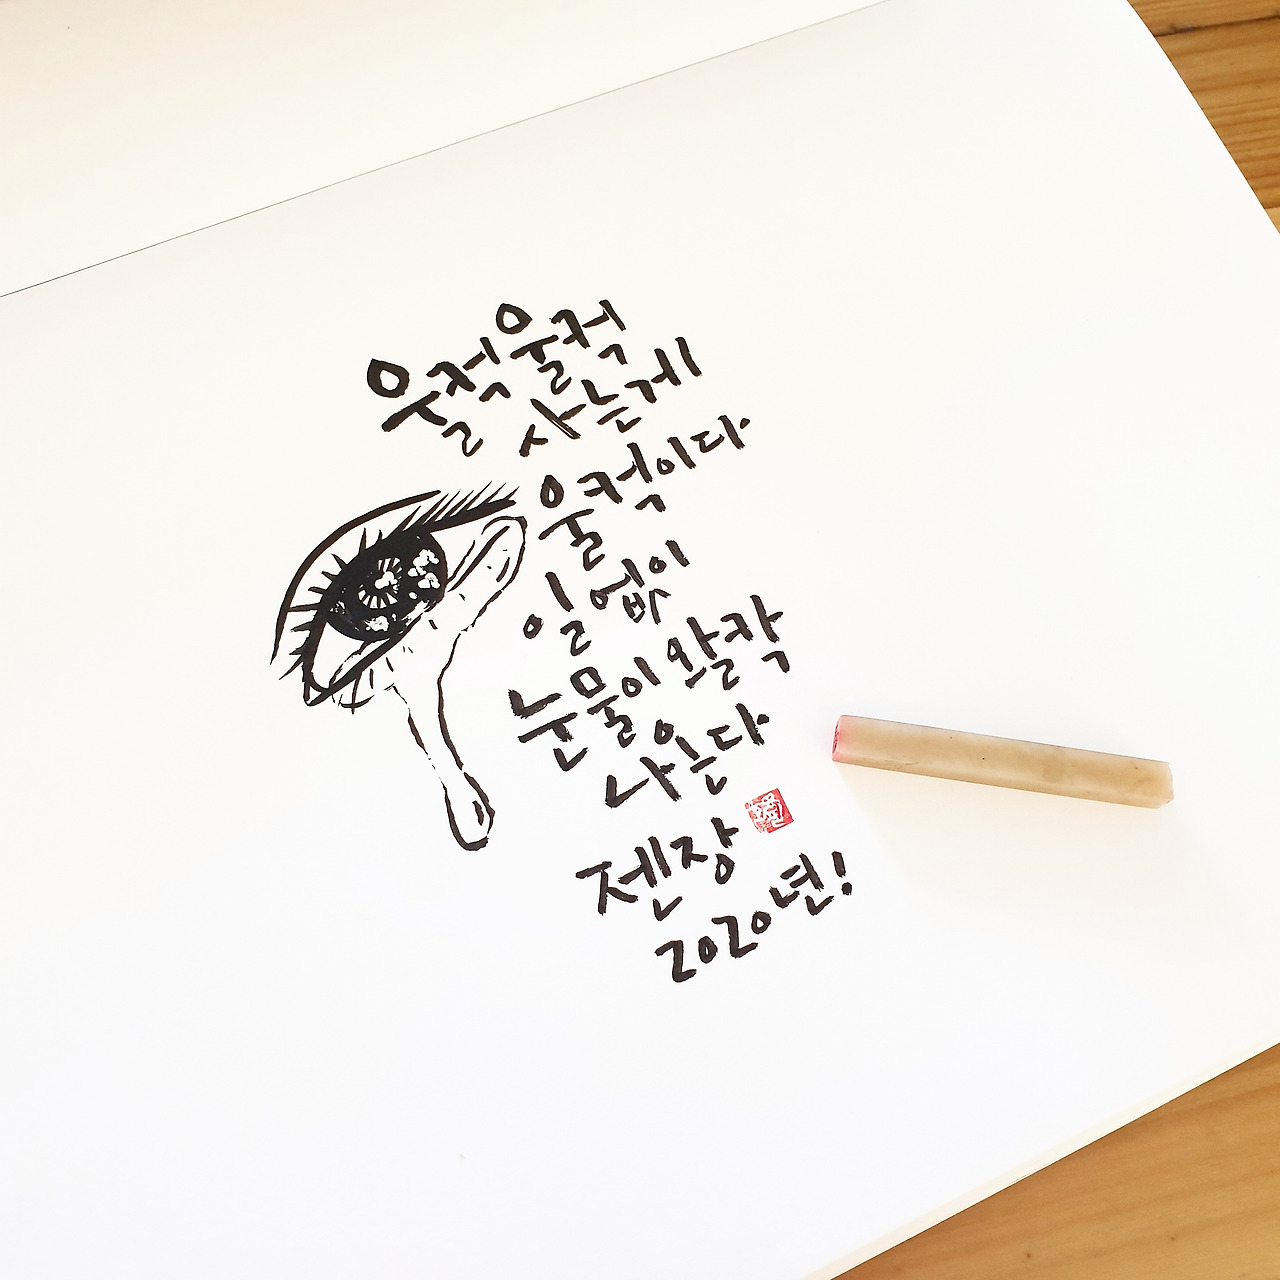 울컥울컥
사는게
울컥이다
일없이
눈물이 왈칵
나온다
젠장
2020년!